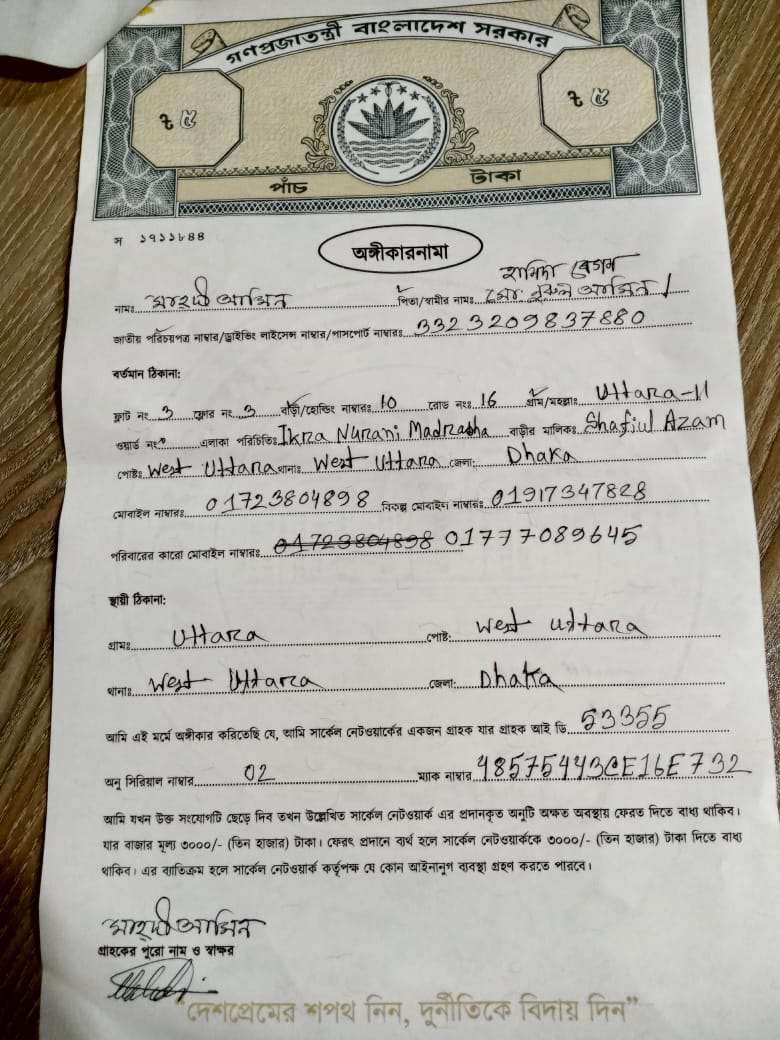 গণপ্রজাতন্ত্রী বাংলাদেশ সরকার
৳ ৫ ৳ ৫
পাঁচ টাকা
স ১৭১১৮৪৪
অঙ্গীকারনামা
হামিদা বেগম
নামঃ মাহদী আমিন পিতা/স্বামীর নামঃ মো: নুরুল আমিন /
জাতীয় পরিচয়পত্র নাম্বার/ড্রাইভিং লাইসেন্স নাম্বার/পাসপোর্ট নাম্বারঃ 3323209837880
বর্তমান ঠিকানা:
ফ্লাট নং 3 ফ্লোর নং 3 বাড়ী/হোল্ডিং নাম্বারঃ 10 রোড নংঃ 16 গ্রাম/মহল্লাঃ Uttara-11
ওয়ার্ড নং এলাকা পরিচিতিঃ Ikra Nurani Madrasha বাড়ীর মালিকঃ Shafiul Azam
পোষ্টঃ West Uttara থানাঃ West Uttara জেলা: Dhaka
মোবাইল নাম্বারঃ 01723804898 বিকল্প মোবাইল নাম্বারঃ 01917347828
পরিবারের কারো মোবাইল নাম্বারঃ 01723804898 01777089645
স্থায়ী ঠিকানা:
গ্রামঃ Uttara পোষ্ট: West Uttara
থানাঃ West Uttara জেলা: Dhaka
আমি এই মর্মে অঙ্গীকার করিতেছি যে, আমি সার্কেল নেটওয়ার্কের একজন গ্রাহক যার গ্রাহক আই ডি 53355
অনু সিরিয়াল নাম্বার 02 ম্যাক নাম্বার 48575443CE16E732
আমি যখন উক্ত সংযোগটি ছেড়ে দিব তখন উল্লেখিত সার্কেল নেটওয়ার্ক এর প্রদানকৃত অনুটি অক্ষত অবস্থায় ফেরত দিতে বাধ্য থাকিব।
যার বাজার মূল্য ৩০০০/- (তিন হাজার) টাকা। ফেরৎ প্রদানে ব্যর্থ হলে সার্কেল নেটওয়ার্ককে ৩০০০/- (তিন হাজার) টাকা দিতে বাধ্য
থাকিব। এর ব্যতিক্রম হলে সার্কেল নেটওয়ার্ক কর্তৃপক্ষ যে কোন আইনানুগ ব্যবস্থা গ্রহণ করতে পারবে।
মাহদী আমিন
গ্রাহকের পুরো নাম ও স্বাক্ষর
"দেশপ্রেমের শপথ নিন, দুর্নীতিকে বিদায় দিন"